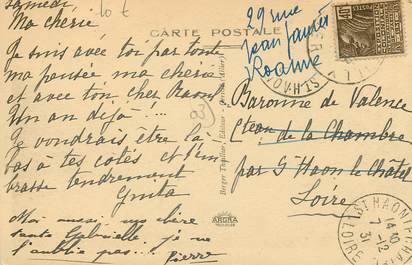 Samedi
Ma chérie
Je suis avec toi par toute
ma pensée ma chérie
et avec ton cher Raoul
Un an déjà !...
Je voudrais être là
bas à tes cotés et t'em
brasse tendrement
Moi aussi, ma chère
Gabrielle, je ne
l'oublie pas...
Pierre
CARTE POSTALE
29 rue
Jean Jaurès
Roanne
Baronne de Valence
Cteau de la Chambre
par St Haon le Chatel
Loire
ARGRA
ST HAON
LOIRE
14 30
1-12
31